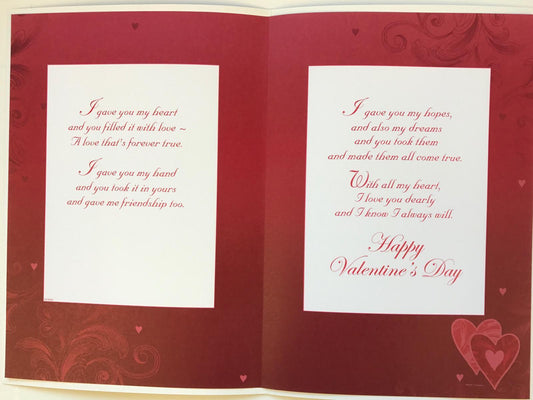 I gave you my heart
and you filled it with love ~
A love that's forever true.
I gave you my hand
and you took it in yours
and gave me friendship too.
I gave you my hopes,
and also my dreams
and you took them
and made them all come true.
With all my heart,
I love you dearly
and I know I always will.
Happy
Valentine's Day